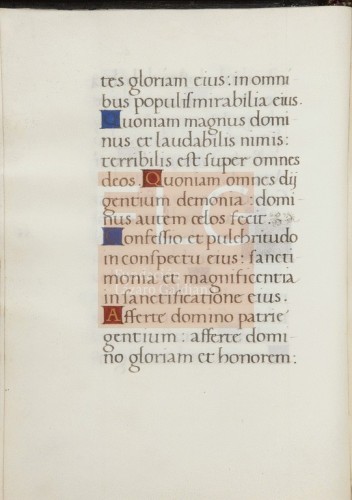 tes gloriam eius: in omni
bus populis mirabilia eius.
Quoniam magnus domi
nus et laudabilis nimis:
terribilis est super omnes
deos. Quoniam omnes dij
gentium demonia: domi-
nus autem celos fecit.
Confessio et pulchritudo
in conspectu eius: sancti
monia et magnificentia
in sanctificatione eius.
Afferte domino patrie
gentium: afferte domi-
no gloriam et honorem:
FLG